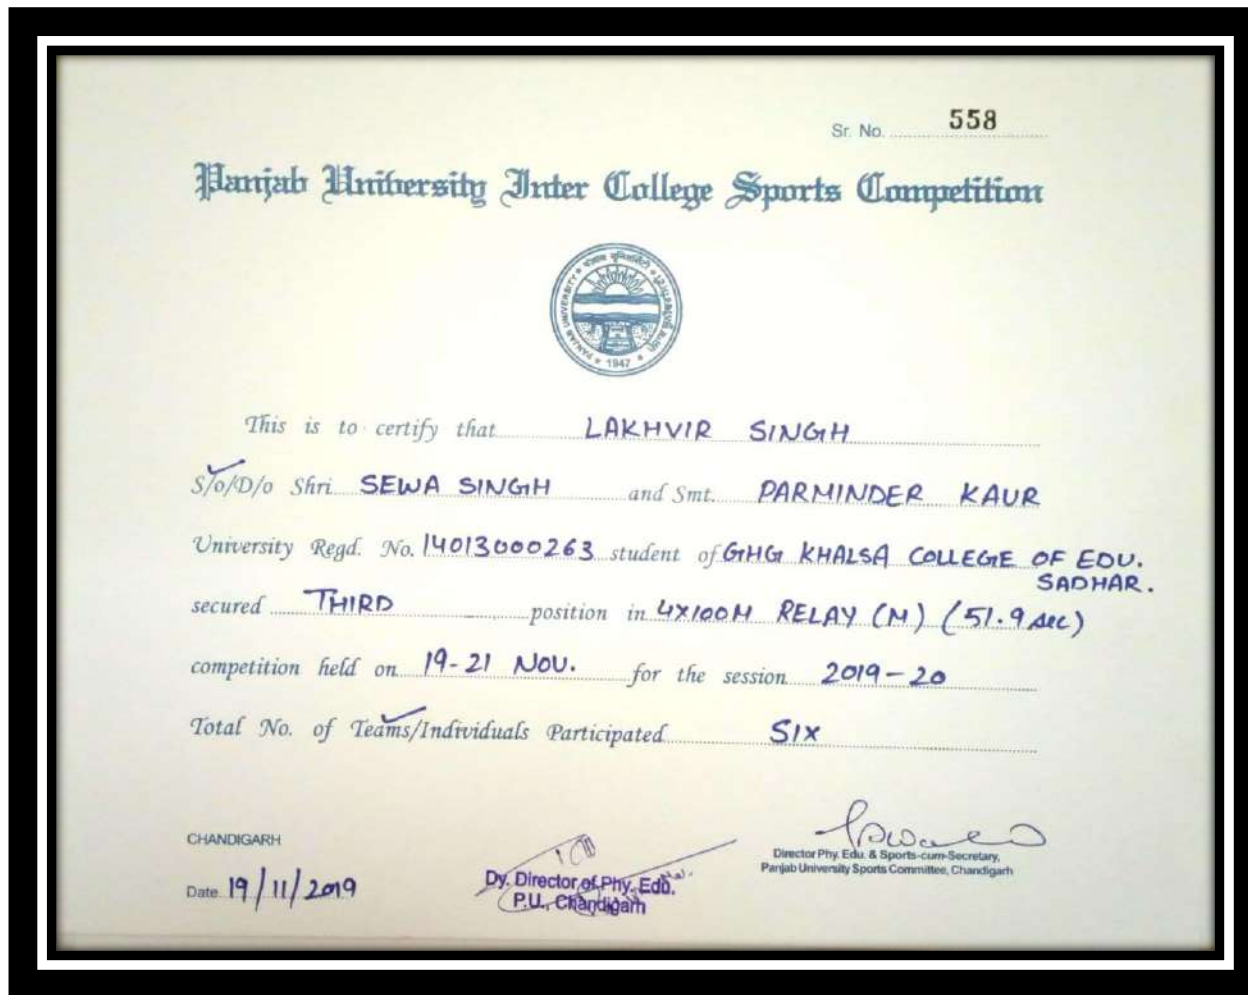 Sr. No. 558
Panjab University Inter College Sports Competition
PANJAB UNIVERSITY
1947
This is to certify that LAKHVIR SINGH
S/o/D/o Shri SEWA SINGH and Smt. PARMINDER KAUR
University Regd. No. 14013000263 student of GHG KHALSA COLLEGE OF EDU.
SADHAR.
secured THIRD position in 4X100M RELAY (M) (51.9 sec)
competition held on 19-21 NOV. for the session 2019-20
Total No. of Teams/Individuals Participated SIX
CHANDIGARH
Date 19/11/2019
Dy. Director of Phy. Edu.
P.U., Chandigarh
Director Phy. Edu. & Sports-cum-Secretary,
Panjab University Sports Committee, Chandigarh